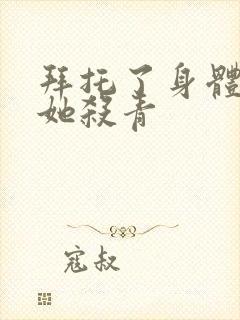 拜托了身體
她殺青
寇叔